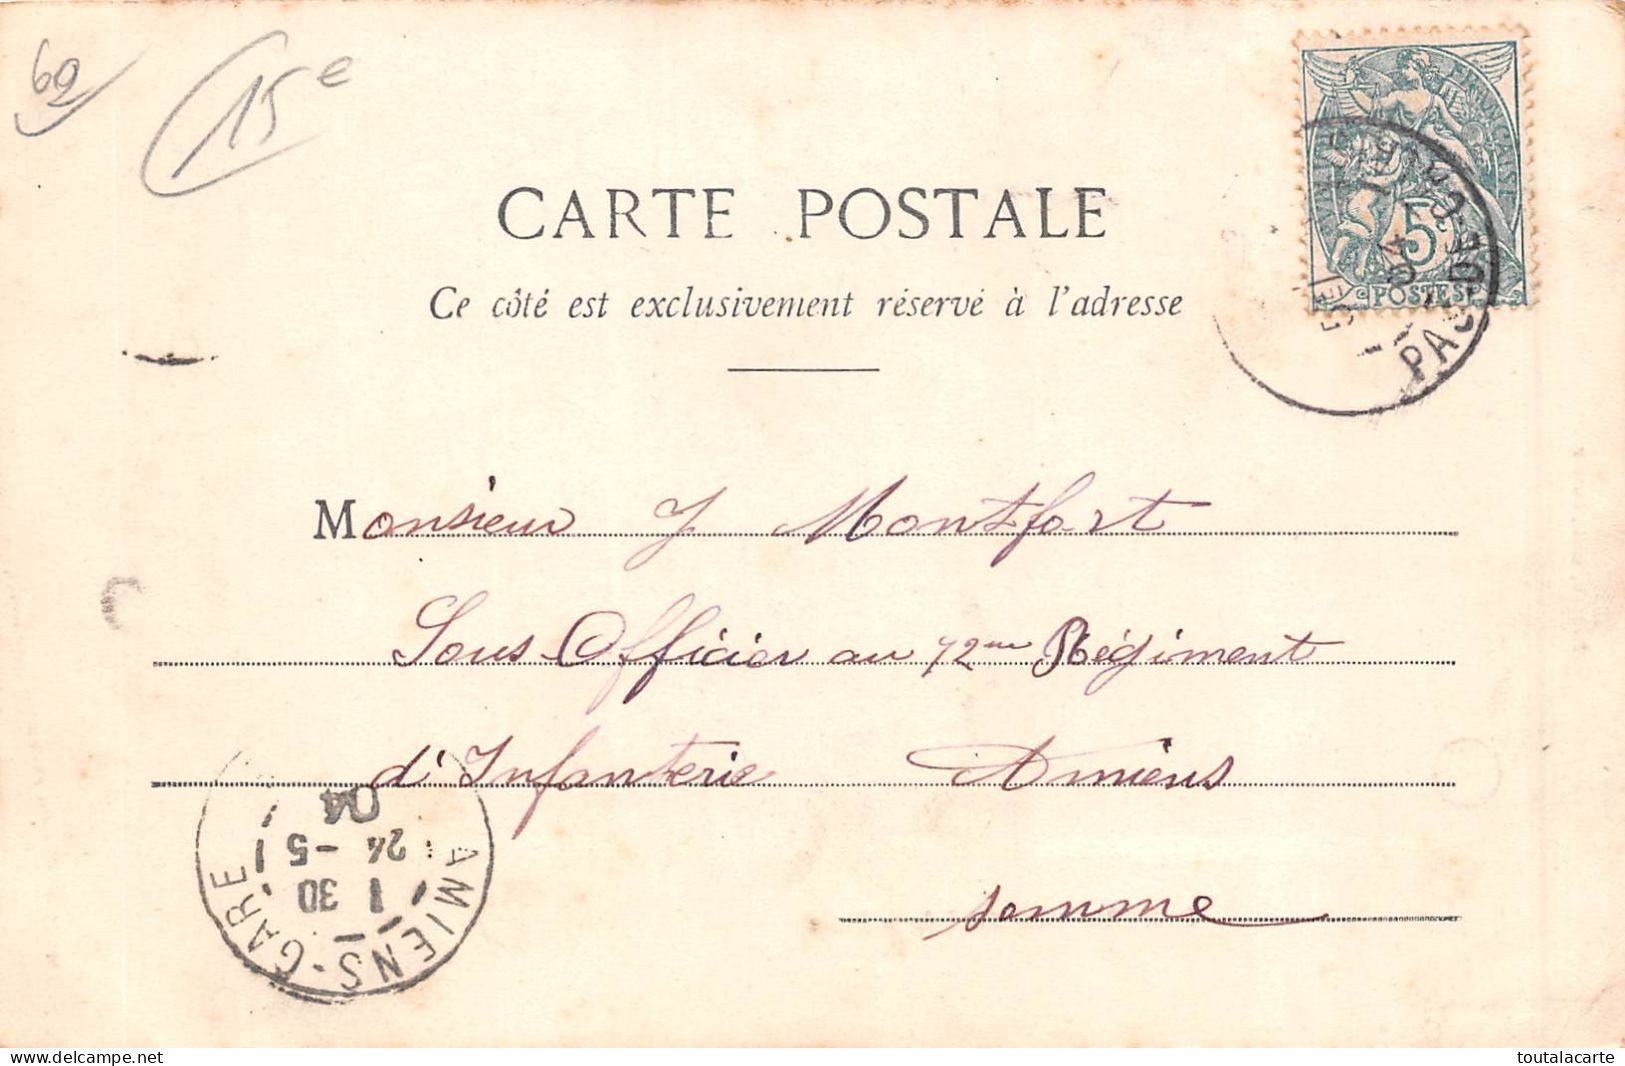 60
15 €
RÉPUBLIQUE FRANÇAISE
5
POSTES
04
PAS-DE-C
CARTE POSTALE
Ce côté est exclusivement réservé à l'adresse
Monsieur J Montfort
Sous-Officier au 72me Régiment
d'Infanterie Amiens
Somme
AMIENS-GARE
1 30
24 -5
04
delcampe.net
toutalacarte